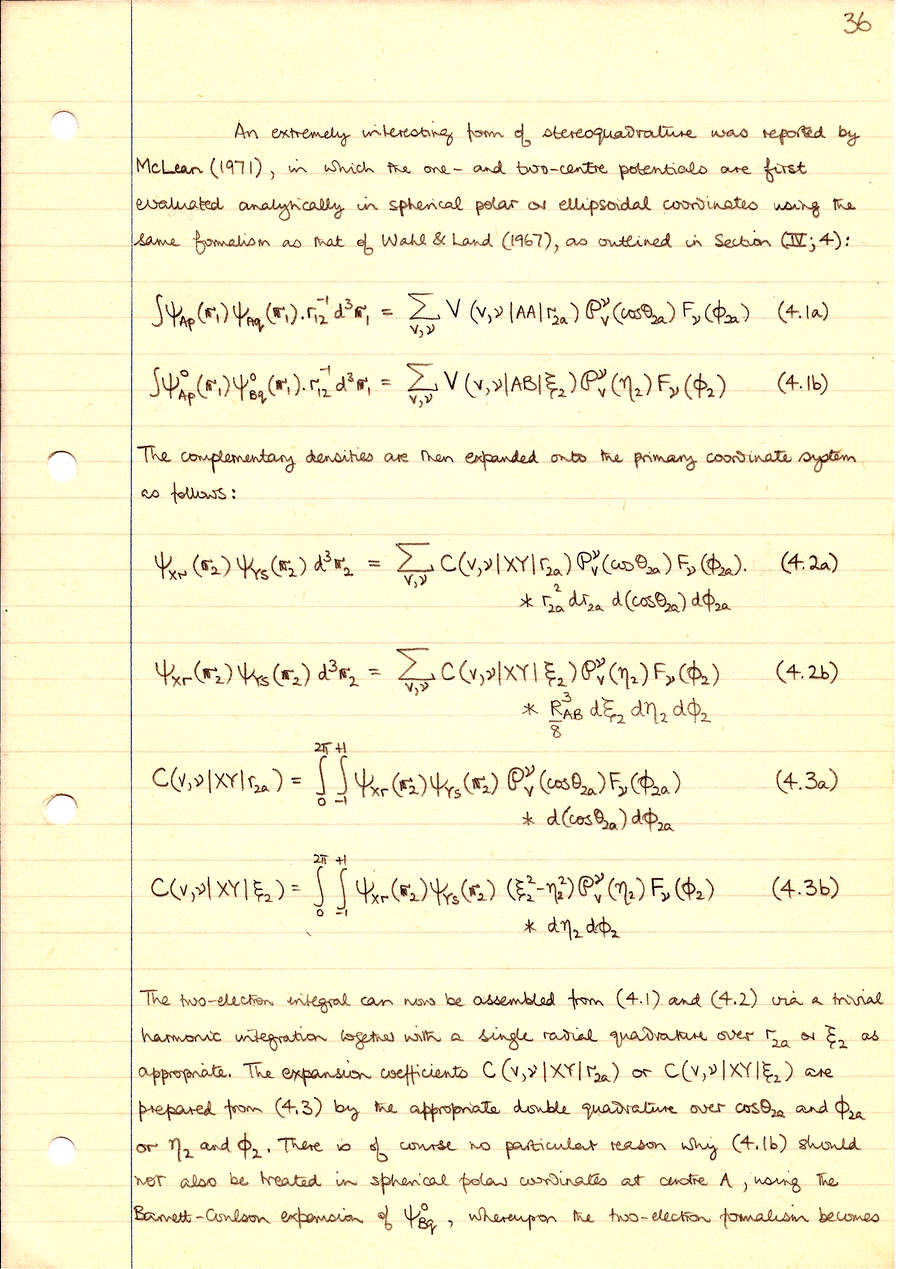 36
An extremely interesting form of stereoquadrature was reported by
McLean (1971), in which the one- and two-centre potentials are first
evaluated analytically in spherical polar or ellipsoidal coordinates using the
same formalism as that of Wahl & Land (1967), as outlined in Section (IV; 4):
∫ψ_Ap(r₁)ψ_Aq(r₁).r₁₂⁻¹d³r₁ = Σ_{v,ν} V(v,ν|AA|r_2a) P_v^ν(cosθ_2a) F_ν(φ_2a) (4.1a)
∫ψ⁰_Ap(r₁)ψ⁰_Bq(r₁).r₁₂⁻¹d³r₁ = Σ_{v,ν} V(v,ν|AB|ξ₂) P_v^ν(η₂) F_ν(φ₂) (4.1b)
The complementary densities are then expanded onto the primary coordinate system
as follows:
ψ_Xr(r₂) ψ_Ys(r₂) d³r₂ = Σ_{v,ν} C(v,ν|XY|r_2a) P_v^ν(cosθ_2a) F_ν(φ_2a). (4.2a)
* r_2a² dr_2a d(cosθ_2a) dφ_2a
ψ_Xr(r₂) ψ_Ys(r₂) d³r₂ = Σ_{v,ν} C(v,ν|XY|ξ₂) P_v^ν(η₂) F_ν(φ₂) (4.2b)
* R_AB³/8 dξ₂ dη₂ dφ₂
C(v,ν|XY|r_2a) = ∫₀^{2π} ∫₋₁^{+1} ψ_Xr(r₂) ψ_Ys(r₂) P_v^ν(cosθ_2a) F_ν(φ_2a) (4.3a)
* d(cosθ_2a) dφ_2a
C(v,ν|XY|ξ₂) = ∫₀^{2π} ∫₋₁^{+1} ψ_Xr(r₂) ψ_Ys(r₂) (ξ₂²-η₂²) P_v^ν(η₂) F_ν(φ₂) (4.3b)
* dη₂ dφ₂
The two-electron integral can now be assembled from (4.1) and (4.2) via a trivial
harmonic integration together with a single radial quadrature over r_2a or ξ₂ as
appropriate. The expansion coefficients C(v,ν|XY|r_2a) or C(v,ν|XY|ξ₂) are
prepared from (4.3) by the appropriate double quadrature over cosθ_2a and φ_2a
or η₂ and φ₂. There is of course no particular reason why (4.1b) should
not also be treated in spherical polar coordinates at centre A, using the
Barnett-Coulson expansion of ψ⁰_Bq, whereupon the two-electron formalism becomes